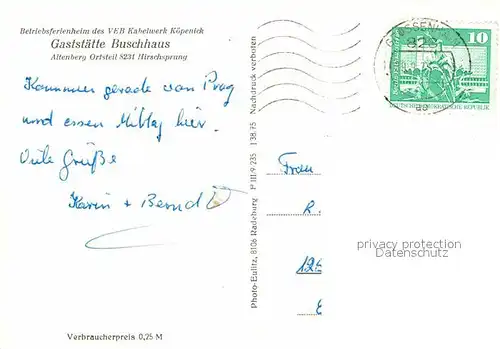 Betriebsferienheim des VEB Kabelwerk Köpenick
Gaststätte Buschhaus
Altenberg Ortsteil 8231 Hirschsprung
Kommen gerade von Prag
und essen Mittag hier.
Viele Grüße
Karin + Bernd
Verbraucherpreis 0,25 M
Photo-Eulitz, 8106 Radeburg P III/9/235 I 38.75 Nachdruck verboten
10
DEUTSCHE DEMOKRATISCHE REPUBLIK
Frau
privacy protection
Dansmacollection.com